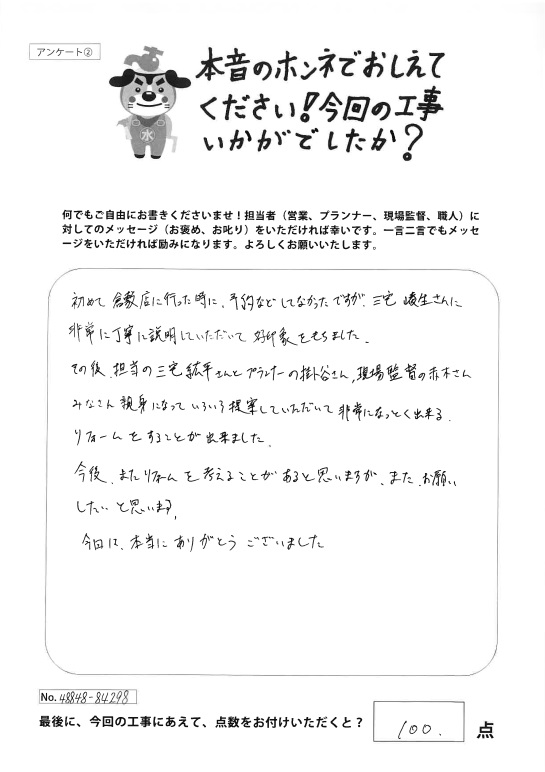 アンケート②
本音のホンネでおしえて
ください！今回の工事
いかがでしたか？
水
何でもご自由にお書きくださいませ！担当者（営業、プランナー、現場監督、職人）に
対してのメッセージ（お褒め、お叱り）をいただければ幸いです。一言二言でもメッセ
ージをいただければ励みになります。よろしくお願いいたします。
初めて倉敷店に行った時に、予約などしてなかったですが、三宅崚生さんに
非常に丁寧に説明していただいて好印象をもちました。
その後、担当の三宅紘平さんとプランナーの掛谷さん、現場監督の赤木さん
みなさん親身になっていろいろ提案していただいて非常になっとく出来る
リフォームをすることが出来ました。
今後、またリフォームを考えることがあると思いますが、また、お願い
したいと思います。
今回は、本当にありがとうございました
No. 48848-84298
最後に、今回の工事にあえて、点数をお付けいただくと？ 100. 点